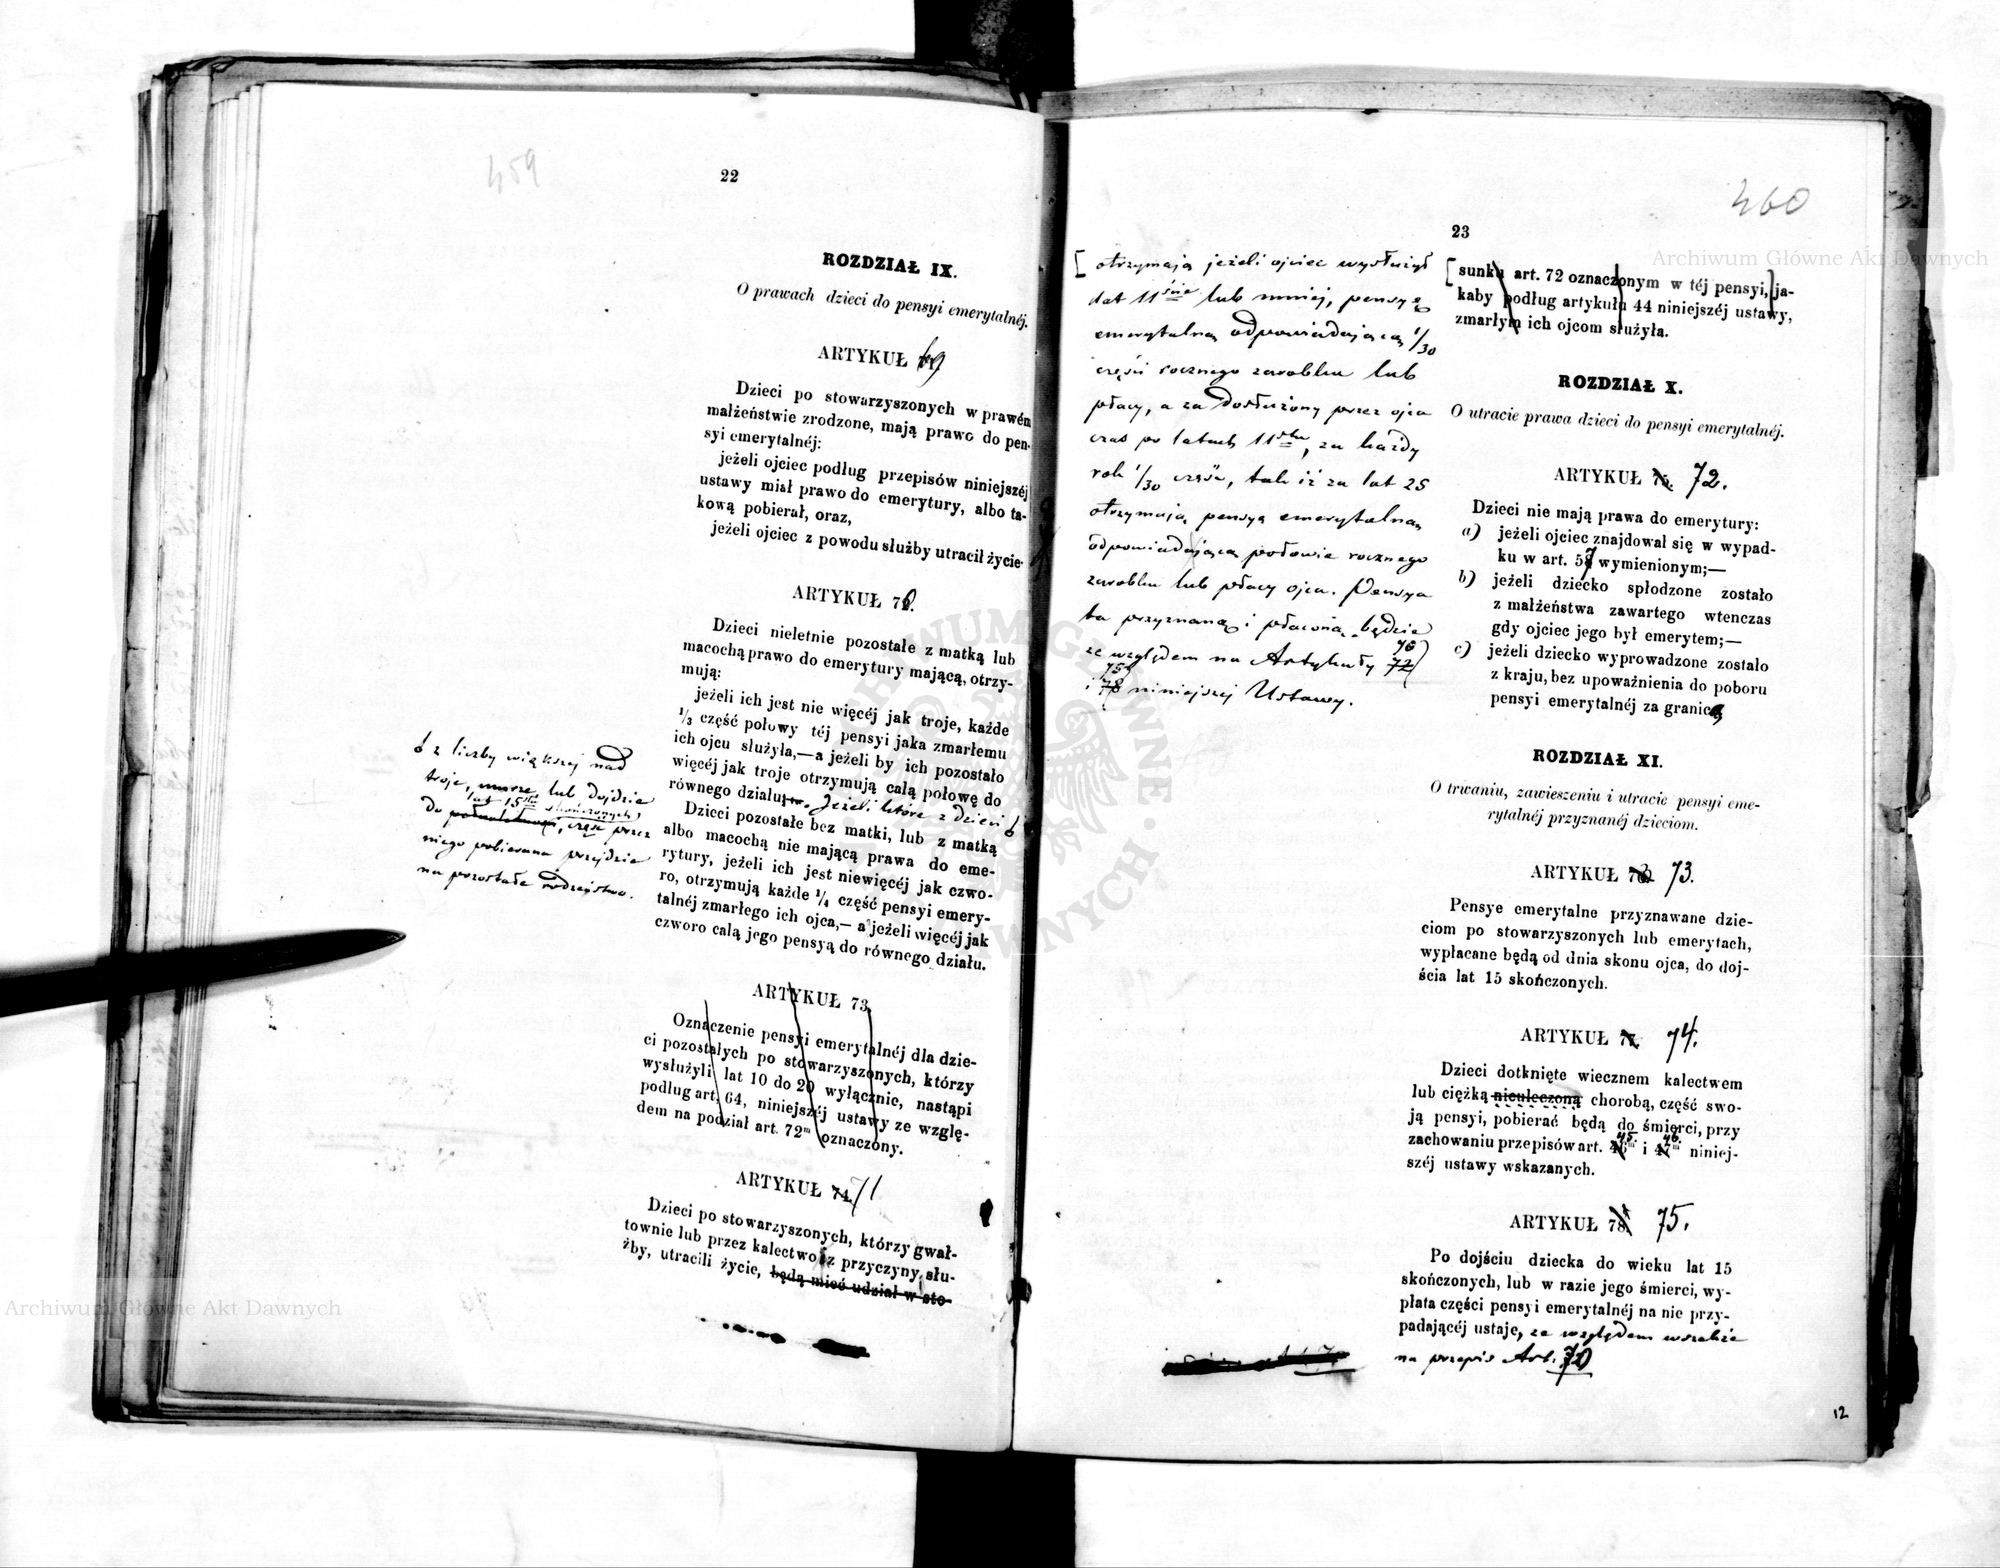 459
22
ROZDZIAŁ IX.
O prawach dzieci do pensyi emerytalnéj.
ARTYKUŁ 69
Dzieci po stowarzyszonych w prawém
małżeństwie zrodzone, mają prawo do pen-
syi emerytalnéj:
jeżeli ojciec podług przepisów niniejszéj
ustawy miał prawo do emerytury, albo ta-
kową pobierał, oraz,
jeżeli ojciec z powodu służby utracił życie.
ARTYKUŁ 70.
Dzieci nieletnie pozostałe z matką lub
macochą prawo do emerytury mającą, otrzy-
mują:
jeżeli ich jest nie więcéj jak troje, każde
1/3 część połowy téj pensyi jaka zmarłemu
ich ojcu służyła,—a jeżeli by ich pozostało
więcéj jak troje otrzymują całą połowę do
równego działu. Jeżeli które z dzieci
z liczby większej nad
troje, umrze lub dojdzie
lat 15stu skończonych
do pełnoletności, część przez
niego pobierana przejdzie
na pozostałe rodzeństwo.
Dzieci pozostałe bez matki, lub z matką
albo macochą nie mającą prawa do eme-
rytury, jeżeli ich jest niewięcéj jak czwo-
ro, otrzymują każde 1/4 część pensyi emery-
talnéj zmarłego ich ojca,— a jeżeli więcéj jak
czworo całą jego pensyą do równego działu.
ARTYKUŁ 73.
Oznaczenie pensyi emerytalnéj dla dzie-
ci pozostałych po stowarzyszonych, którzy
wysłużyli lat 10 do 20 wyłącznie, nastąpi
podług art. 64, niniejszéj ustawy ze wzglę-
dem na podział art. 72m oznaczony.
ARTYKUŁ 74. 71
Dzieci po stowarzyszonych, którzy gwał-
townie lub przez kalectwo z przyczyny słu-
żby, utracili życie, będą mieć udział w sto-
460
23
[ otrzymają jeżeli ojciec wysłużył
lat 11ście lub mniej, pensyę
emerytalną odpowiadającą 1/30
części rocznego zarobku lub
płacy, a za dosłużony przez ojca
czas po latach 11stu, za każdy
rok 1/30 część, tak iż za lat 25
otrzymają pensyą emerytalną
odpowiadającą połowie rocznego
zarobku lub płacy ojca. Pensya
ta przyznaną i płaconą będzie
ze względem na Artykuły 72 70
i 78 75 niniejszej Ustawy.
[sunku art. 72 oznaczonym w téj pensyi, ja-
kaby podług artykułu 44 niniejszéj ustawy,
zmarłym ich ojcom służyła.
ROZDZIAŁ X.
O utracie prawa dzieci do pensyi emerytalnéj.
ARTYKUŁ 75. 72.
Dzieci nie mają prawa do emerytury:
a) jeżeli ojciec znajdował się w wypad-
ku w art. 57 wymienionym;—
b) jeżeli dziecko spłodzone zostało
z małżeństwa zawartego wtenczas
gdy ojciec jego był emerytem;—
c) jeżeli dziecko wyprowadzone zostało
z kraju, bez upoważnienia do poboru
pensyi emerytalnéj za granicą
ROZDZIAŁ XI.
O trwaniu, zawieszeniu i utracie pensyi eme-
rytalnéj przyznanéj dzieciom.
ARTYKUŁ 76. 73.
Pensye emerytalne przyznawane dzie-
ciom po stowarzyszonych lub emerytach,
wypłacane będą od dnia skonu ojca, do doj-
ścia lat 15 skończonych.
ARTYKUŁ 77. 74.
Dzieci dotknięte wiecznem kalectwem
lub ciężką nieuleczoną chorobą, część swo-
ją pensyi, pobierać będą do śmierci, przy
zachowaniu przepisów art. 46m 45 i 47m 46 niniej-
széj ustawy wskazanych.
ARTYKUŁ 78. 75.
Po dojściu dziecka do wieku lat 15
skończonych, lub w razie jego śmierci, wy-
płata części pensyi emerytalnéj na nie przy-
padającéj ustaje, ze względem wszakże
na przepis Art. 70
12
Archiwum Główne Akt Dawnych
Archiwum Główne Akt Dawnych
ARCHIWUM GŁÓWNE AKT DAWNYCH